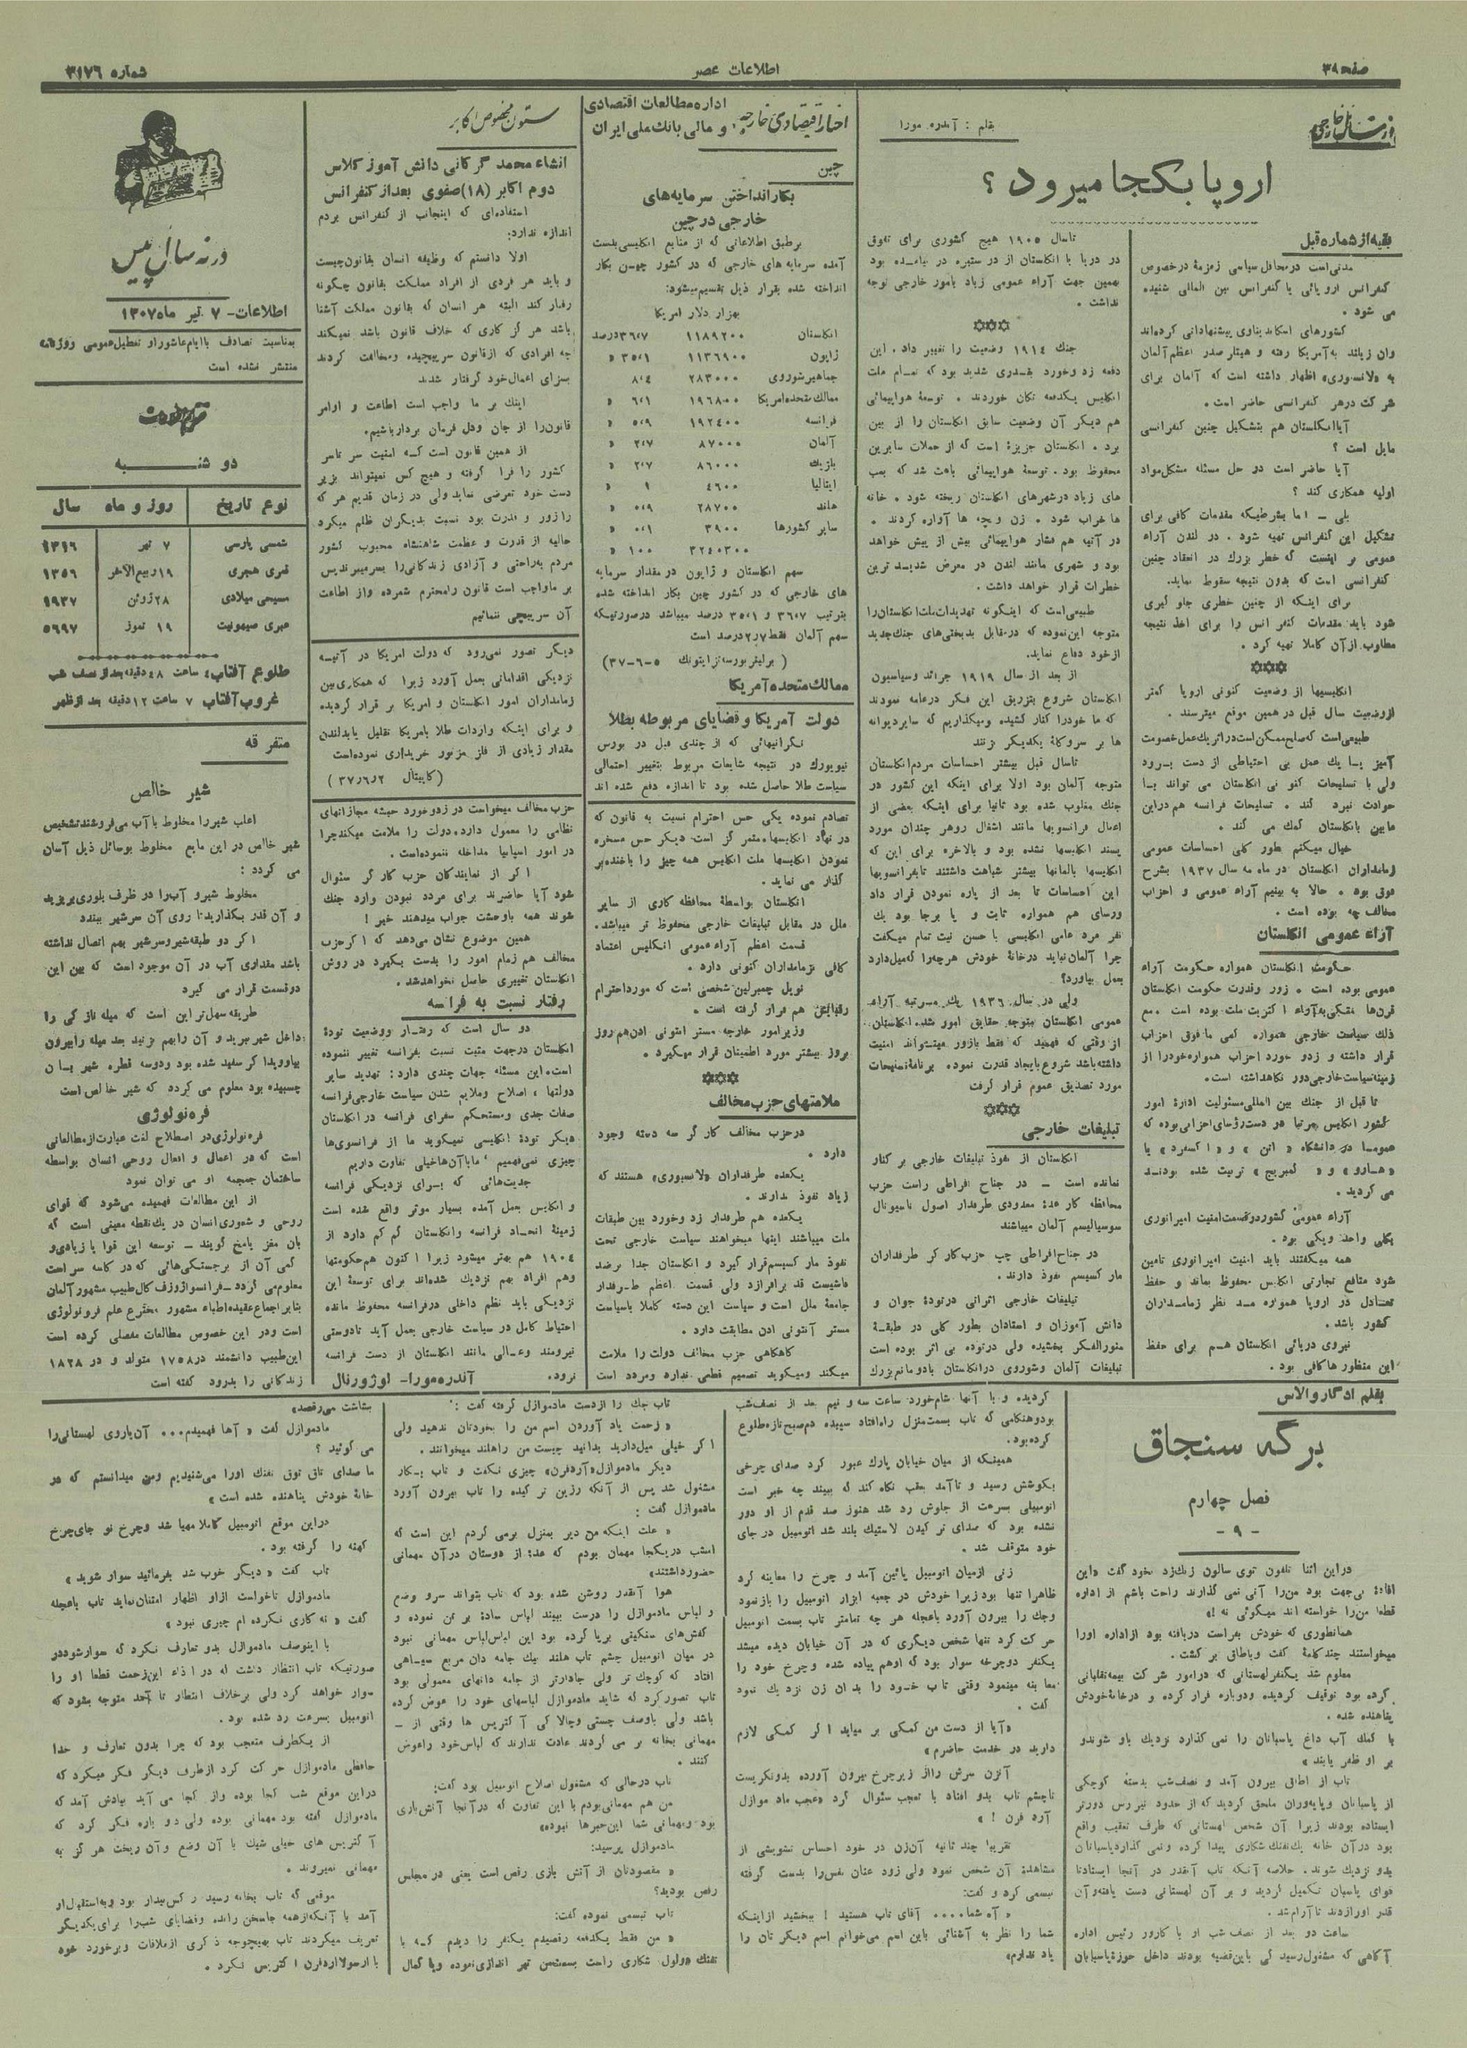 صفحه ۳۸
اطلاعات عصر
شماره ۳۱۷۶
بقلم : آندره مورا
اروپا بکجا میرود ؟
بقیه از شماره قبل
مدتی است در محافل سیاسی زمزمهٔ در خصوص
کنفرانس اروپائی یا کنفرانس بین المللی شنیده
می شود .
کشورهای اسکاندیناوی پیشنهاداتی کرده‌اند
وان زیلند به‌آمریکا رفته و هیتلر صدر اعظم آلمان
به «لانسوری» اظهار داشته است که آلمان برای
شرکت در هر کنفرانسی حاضر است .
آیا انگلستان هم بتشکیل چنین کنفرانسی
مایل است ؟
آیا حاضر است در حل مسئله مشکل مواد
اولیه همکاری کند ؟
بلی – اما بشرطیکه مقدمات کافی برای
تشکیل این کنفرانس تهیه شود . در لندن آراء
عمومی بر اینست که خطر بزرك در انعقاد چنین
کنفرانسی است که بدون نتیجه سقوط نماید.
برای اینکه از چنین خطری جلو گیری
شود باید مقدمات کنفرانس را برای اخذ نتیجه
مطلوب از آن کاملا تهیه کرد .
انگلیسیها از وضعیت کنونی اروپا کمتر
از وضعیت سال قبل در همین موقع میترسند .
طبیعی است که صلح ممکن است در اثر یك عمل خصومت
آمیز یا یك عمل بی احتیاطی از دست برود
ولی با تسلیحات کنونی انگلستان می تواند با
حوادث نبرد کند . تسلیحات فرانسه هم در این
مابین بانگلستان کمك می کند .
خیال میکنم بطور کلی احساسات عمومی
زمامداران انگلستان در ماه مه سال ۱۹۳۷ بشرح
فوق بود . حالا به بینیم آراء عمومی و احزاب
مخالف چه بوده است .
آراء عمومی انگلستان
حکومت انگلستان همواره حکومت آراء
عمومی بوده است . زور وقدرت حکومت انگلستان
قرن‌ها متکی به آراء اکثریت ملت بوده است . مع
ذلك سیاست خارجی همواره کمی ما فوق احزاب
قرار داشته و زدو خورد احزاب همواره خود را از
زمینه سیاست خارجی دور نگاهداشته است.
تا قبل از جنك بین المللی مسئولیت ادارهٔ امور
کشور انگلیس مرتبا در دست رؤسای احزابی بوده که
عموما در دانشگاه « اتن » و « اکسفرد » یا
«هارو» و « کمبریج » تربیت شده بودند
می گردید .
آراء عمومی کشور در قسمت امنیت امپراتوری
بکلی واحد ویکی بود .
همه میگفتند باید امنیت امپراتوری تامین
شود منافع تجارتی انگلیس محفوظ بماند و حفظ
تعادل در اروپا همواره مد نظر زمامداران
کشور باشد .
نیروی دریائی انگلستان هم برای حفظ
این منظورها کافی بود .
تاسال ۱۹۰۵ هیچ کشوری برای تفوق
در دریا با انگلستان از در ستیزه در نیامده بود
بهمین جهت آراء عمومی زیاد بامور خارجی توجه
نداشت .
جنك ۱۹۱۴ وضعیت را تغییر داد . این
دفعه زد وخورد بقدری شدید بود که تمام ملت
انگلیس یکدفعه تکان خوردند . توسعهٔ هواپیمائی
هم دیگر آن وضعیت سابق انگلستان را از بین
برد . انگلستان جزیرهٔ است که از حملات سایرین
محفوظ بود . توسعهٔ هواپیمائی باعث شد که بمب
های زیاد در شهرهای انگلستان ریخته شود . خانه
ها خراب شود . زن و بچه ها آواره گردند .
در آتیه هم فشار هواپیمائی بیش از پیش خواهد
بود و شهری مانند لندن در معرض شدید ترین
خطرات قرار خواهد داشت .
طبیعی است که اینگونه تهدیدات ملت انگلستان را
متوجه این نموده که در مقابل بدبختی‌های جنك جدید
از خود دفاع نماید.
از بعد از سال ۱۹۱۹ جرائد و سیاسیون
انگلستان شروع بتزریق این فکر در عامه نمودند
که ما خود را کنار کشیده و میگذاریم که سایر دیوانه
ها بر سر و کلهٔ یکدیگر بزنند
تاسال قبل بیشتر احساسات مردم انگلستان
متوجه آلمان بود اولا برای اینکه این کشور در
جنك مغلوب شده بود ثانیا برای اینکه بعضی از
اعمال فرانسویها مانند اشغال روهر چندان مورد
پسند انگلیسها نشده بود و بالاخره برای این که
انگلیسها بآلمانها بیشتر شباهت داشتند تا بفرانسویها
این احساسات تا بعد از پاره نمودن قرار داد
ورسای هم همواره ثابت و پا برجا بود یك
نفر مرد عامی انگلیسی با حسن نیت تمام میگفت
چرا آلمان نباید در خانهٔ خودش هرچه را که میل دارد
بعمل بیاورد؟
ولی در سال ۱۹۳۶ یك مرتبه آراء
عمومی انگلستان متوجه حقایق امور شد. انگلستان
از وقتی که فهمید که فقط بازور میتواند امنیت
داشته باشد شروع بایجاد قدرت نموده برنامهٔ تسلیحات
مورد تصدیق عموم قرار گرفت
تبلیغات خارجی
انگلستان از نفوذ تبلیغات خارجی بر کنار
نمانده است – در جناح افراطی راست حزب
محافظه کار عدهٔ معدودی طرفدار اصول ناسیونال
سوسیالیسم آلمان میباشند
در جناح افراطی چپ حزب کارگر طرفداران
مارکسیسم نفوذ دارند .
تبلیغات خارجی اثراتی در تودهٔ جوان و
دانش آموزان و استادان بطور کلی در طبقهٔ
منورالفکر بخشیده ولی در توده بی اثر بوده است
تبلیغات آلمان وشوروی در انگلستان بادو مانع بزرك
اخبار اقتصادی خارجه
اداره مطالعات اقتصادی
و مالی بانك ملی ایران
چین
بکار انداختن سرمایه های
خارجی در چین
برطبق اطلاعاتی که از منابع انگلیسی بدست
آمده سرمایه های خارجی که در کشور چین بکار
انداخته شده بقرار ذیل تقسیم میشود:
بهزار دلار امریکا
انگلستان ۱۱۸۹۲۰۰ ۳۶٫۷ درصد
ژاپون ۱۱۳۶۹۰۰ ۳۵٫۱ »
جماهیر شوروی ۲۸۳۰۰۰ ۸٫۴
ممالك متحده امریکا ۱۹۶۸۰۰ ۶٫۱ »
فرانسه ۱۹۲۴۰۰ ۵٫۹ »
آلمان ۸۷۰۰۰ ۲٫۷ »
بلژیك ۸۶۰۰۰ ۲٫۷ »
ایتالیا ۴۶۰۰ ۹ »
هلند ۲۸۷۰۰ ۰٫۹ »
سایر کشورها ۳۹۰۰ ۰٫۱ »
۳۲۴۰۳۰۰ ۱۰۰ »
سهم انگلستان و ژاپون در مقدار سرمایه
های خارجی که در کشور چین بکار انداخته شده
بترتیب ۳۶٫۷ و ۳۵٫۱ درصد میباشد در صورتیکه
سهم آلمان فقط ۲٫۷ درصد است
( برلینر بورسه زایتونك ۵-۶-۳۷)
ممالك متحده آمریکا
دولت آمریکا وقضایای مربوطه بطلا
نگرانیهائی که از چندی قبل در بورس
نیویورك در نتیجه شایعات مربوط بتغییر احتمالی
سیاست طلا حاصل شده بود تا اندازه دفع شده اند
تصادم نموده یکی حس احترام نسبت به قانون که
در نهاد انگلیسها متمرکز است دیگر حس مسخره
نمودن انگلیسها ملت انگلیس همه چیز را باخنده بر
گذار می نماید .
انگلستان بواسطهٔ محافظه کاری از سایر
ملل در مقابل تبلیغات خارجی محفوظ تر میباشد.
قسمت اعظم آراء عمومی انگلیس اعتماد
کافی بزمامداران کنونی دارد .
نویل چمبرلین شخصی است که مورد احترام
رقبایش هم قرار گرفته است .
وزیر امور خارجه مستر انتونی ادن هم روز
بروز بیشتر مورد اطمینان قرار میگیرد .
ملامتهای حزب مخالف
در حزب مخالف کارگر سه دسته وجود
دارد .
یکعده طرفداران «لانسبوری» هستند که
زیاد نفوذ ندارند .
یکعده هم طرفدار زد وخورد بین طبقات
ملت میباشند اینها میخواهند سیاست خارجی تحت
نفوذ مارکسیسم قرار گیرد و انگلستان جدا برضد
فاشیست قد برافرازد ولی قسمت اعظم طرفدار
جامعهٔ ملل است و سیاست این دسته کاملا باسیاست
مستر آنتونی ادن مطابقت دارد .
گاهگاهی حزب مخالف دولت را ملامت
میکند ومیگوید تصمیم قطعی ندارد ومردد است
ستون مخصوص اکابر
انشاء محمد گرکانی دانش آموز کلاس
دوم اکابر (۱۸) صفوی بعد از کنفرانس
استفاده‌ای که اینجانب از کنفرانس بردم
اندازه ندارد:
اولا دانستم که وظیفه انسان بقانون چیست
و باید هر فردی از افراد مملکت بقانون چگونه
رفتار کند البته هر انسان که بقانون مملکت آشنا
باشد هرگز کاری که خلاف قانون باشد نمیکند
چه افرادی که از قانون سرپیچیده ومخالفت کردند
بسزای اعمال خود گرفتار شدند
اینك بر ما واجب است اطاعت و اوامر
قانون را از جان ودل فرمان بردار باشیم.
از همین قانون است که امنیت سرتاسر
کشور را فرا گرفته و هیچ کس نمیتواند بزیر
دست خود تعرضی نماید ولی در زمان قدیم هر که
را زور و قدرت بود نسبت بدیگران ظلم میکرد
حالیه از قدرت و عظمت شاهنشاه محبوب کشور
مردم به‌راحتی و آزادی زندگانی را بسر میبرند پس
بر ما واجب است قانون را محترم شمرده و از اطاعت
آن سرپیچی ننمائیم
دیگر تصور نمی‌رود که دولت امریکا در آتیه
نزدیکی اقداماتی بعمل آورد زیرا که همکاری بین
زمامداران امور انگلستان و امریکا برقرار گردیده
و برای اینکه واردات طلا بامریکا تقلیل یابد لندن
مقدار زیادی از فلز مزبور خریداری نموده است
(کاپیتال ۳۷٫۶٫۲ )
حزب مخالف میخواست در زدوخورد حبشه مجازاتهای
نظامی را معمول دارد. دولت را ملامت میکند چرا
در امور اسپانیا مداخله ننموده است.
اگر از نمایندگان حزب کارگر سئوال
شود آیا حاضرند برای مردد نبودن وارد جنك
شوند همه باوحشت جواب میدهند خیر !
همین موضوع نشان می‌دهد که اگر حزب
مخالف هم زمام امور را بدست بگیرد در روش
انگلستان تغییری حاصل نخواهد شد.
رفتار نسبت به فرانسه
دو سال است که رفتار ووضعیت تودهٔ
انگلستان در جهت مثبت نسبت بفرانسه تغییر ننموده
است. این مسئله جهات چندی دارد : تهدید سایر
دولتها ، اصلاح وملایم شدن سیاست خارجی فرانسه
صفات جدی ومستحکم سفرای فرانسه در انگلستان
دیگر تودهٔ انگلیسی نمیگوید ما از فرانسوی‌ها
چیزی نمی‌فهمیم ، ما با آن‌ها خیلی تفاوت داریم
جدیت‌هائی که برای نزدیکی فرانسه
و انگلیس بعمل آمده بسیار موثر واقع شده است
زمینهٔ اتحاد فرانسه وانگلستان کم کم دارد از
۱۹۰۴ هم بهتر میشود زیرا اکنون هم حکومتها
وهم افراد بهم نزدیك شده‌اند برای توسعهٔ این
نزدیکی باید نظم داخلی در فرانسه محفوظ مانده
احتیاط کامل در سیاست خارجی بعمل آید تا دوستی
نیرومند وعالی مانند انگلستان از دست فرانسه
نرود.
آندره مورا – لوژورنال
در نه سال پیش
اطلاعات – ۷ تیر ماه ۱۳۰۷
بمناسبت تصادف با ایام عاشورا و تعطیل عمومی روزنامه
منتشر نشده است
دو شنبه
نوع تاریخ | روز و ماه | سال
شمسی پارسی | ۷ تیر | ۱۳۱۶
قمری هجری | ۱۹ ربیع‌الاخر | ۱۳۵۶
مسیحی میلادی | ۲۸ ژوئن | ۱۹۳۷
عبری صیهونیت | ۱۹ تموز | ۵۶۹۷
طلوع آفتاب ۴ ساعت ۴۸ دقیقه بعد از نصف شب
غروب آفتاب ۷ ساعت ۱۲ دقیقه بعد از ظهر
متفرقه
شیر خالص
اغلب شیر را مخلوط با آب می‌فروشند تشخیص
شیر خالص در این مایع مخلوط بوسائل ذیل آسان
می گردد :
مخلوط شیر و آب را در ظرف بلوری بریزید
و آن قدر بگذارید تا روی آن سرشیر ببندد
اگر دو طبقه شیر وسرشیر بهم اتصال نداشته
باشد مقداری آب در آن موجود است که بین این
دو قسمت قرار می گیرد
طریقه سهل‌تر این است که میله نازکی را
داخل شیر ببرید و آن را بهم بزنید بعد میله را بیرون
بیاورید اگر سفید شده بود ودوسه قطره شیر بآن
چسبیده بود معلوم می گردد که شیر خالص است
فره‌نولوژی
فره‌نولوژی در اصطلاح لغت عبارت از مطالعاتی
است که در اعمال و افعال روحی انسان بواسطه
ساختمان جمجمه او می توان نمود
از این مطالعات فهمیده می‌شود که قوای
روحی و شعوری انسان در یك نقطه معینی است که
بان مغز یا مخ گویند – توسعه این قوا یا زیادی و
کمی آن از برجستگی‌هائی که در کاسه سر است
معلوم می گردد – فرانسوا ژوزف کال طبیب مشهور آلمان
بنابر اجماع عقیده اطباء مشهور مخترع علم فرنولوژی
است ودر این خصوص مطالعات مفصلی کرده است
این طبیب دانشمند در ۱۷۵۸ متولد و در ۱۸۲۸
زندگانی را بدرود گفته است
بقلم ادگار والاس
برگه سنجاق
فصل چهارم
- ۹ -
در این اثنا تلفون توی سالون زنگ زد بخود گفت «این
قطعا من را خواسته اند میگوئی نه !»
همانطوری که خودش بفراست دریافته بود از اداره اورا
میخواستند چند کلمهٔ گفت و باطاق بر گشت .
معلوم شد یکنفر لهستانی که در امور شرکت بیمه تقلباتی
کرده بود توقیف گردیده ودوباره فرار کرده و در خانهٔ خودش
پناهنده شده .
با کمك آب داغ پاسبانان را نمی گذارد نزدیك باو شوند و
بر او ظفر یابند »
تاب از اطاق بیرون آمد و نصف شب بدستهٔ کوچکی
از پاسبانان وپایه‌وران ملحق گردید که از حدود تیررس دورتر
ایستاده بودند زیرا آن شخص لهستانی که طرف تعقیب واقع
بود در آن خانه یك تفنك شکاری پیدا کرده و نمی گذارد پاسبانان
بدو نزدیك شوند . خلاصه آنکه تاب آنقدر در آنجا ایستاد تا
قوای پاسبان تکمیل گردید و بر آن لهستانی دست یافته و آن
قدر اورا زدند تا آرام شد .
ساعت دو بعد از نصف شب او با کارور رئیس اداره
آگاهی که مشغول رسید گی باین قضیه بودند داخل حوزهٔ پاسبانان
گردیده و با آنها شام خورد ساعت سه و نیم بعد از نصف شب
بود وهنگامی که تاب بسمت منزل راه افتاد سپیده دم صبح تازه طلوع
کرده بود.
همینکه از میان خیابان پارك عبور کرد صدای چرخی
بگوشش رسید و تا آمد بعقب نگاه کند که ببیند چه خبر است
اتومبیلی بسرعت از جلوش رد شد هنوز صد قدم از او دور
نشده بود که صدای ترکیدن لاستیك بلند شد اتومبیل در جای
خود متوقف شد .
زنی از میان اتومبیل پائین آمد و چرخ را معاینه کرد
ظاهرا تنها بود زیرا خودش در جعبه ابزار اتومبیل را باز نمود
وجك را بیرون آورد باعجله هر چه تمامتر تاب بسمت اتومبیل
حرکت کرد تنها شخص دیگری که در آن خیابان دیده میشد
یکنفر دوچرخه سوار بود که او هم پیاده شده وچرخ خود را
معاینه مینمود وقتی تاب خود را بدان زن نزدیك نمود
گفت .
«آیا از دست من کمکی بر میاید اگر کمکی لازم
دارید در خدمت حاضرم »
آنزن سرش را از زیر چرخ بیرون آورده بدو نگریست
تا چشم تاب بدو افتاد با تعجب سئوال کرد «عجب ماد موازل
آرد فرن ! »
تقریبا چند ثانیه آن زن در خود احساس تشویشی از
مشاهدهٔ آن شخص نمود ولی زود عنان نفس را بدست گرفته
تبسمی کرد و گفت:
« آه شما.... آقای تاب هستید ! ببخشید از اینکه
شما را نظر به آشنائی باین اسم می‌خوانم اسم دیگرتان را
یاد ندارم»
تاب جك را از دست مادموازل گرفته گفت :
« زحمت یاد آوردن اسم من را بخودتان ندهید ولی
اگر خیلی میل دارید بدانید چیست من را هلند میخوانند .
دیگر مادموازل «آرد فرن» چیزی نگفت و تاب بکار
مشغول شد پس از آنکه رزین ترکیده را تاب بیرون آورد
مادموازل گفت :
« علت اینکه من دیر بمنزل برمی گردم این است که
امشب در یکجا مهمان بودم که عدهٔ از دوستان در آن مهمانی
حضور داشتند»
هوا آنقدر روشن شده بود که تاب بتواند سر و وضع
و لباس مادموازل را درست ببیند لباس سادهٔ بر تن نموده و
کفش‌های سنگینی بر پا کرده بود این لباس لباس مهمانی نبود
در میان اتومبیل چشم تاب هلند بیك جامه دان مربع سیاهی
افتاد که کوچك تر ولی جادارتر از جامه دانهای معمولی بود
تاب تصور کرد که شاید مادموازل لباسهای خود را عوض کرده
باشد ولی باوصف چستی وچالاکی آکتریس ها وقتی از –
مهمانی بخانه بر می گردند عادت ندارند که لباس خود را عوض
کنند .
تاب در حالی که مشغول اصلاح اتومبیل بود گفت:
من هم مهمانی بودم با این تفاوت که در آنجا آتش بازی
بود و مهمانی شما این خبرها نبوده»
مادموازل پرسید:
« مقصودتان از آتش بازی رقص است یعنی در مجلس
رقص بودید؟
تاب تبسمی نموده گفت:
« من فقط یکدفعه رقصیدم یکنفر را دیدم که با
تفنك دولول شکاری راحت بسمت من تیر اندازی نموده وبا کمال
بشاشت می‌رقصید»
مادموازل گفت « آها فهمیدم... آن یاروی لهستانی را
می گوئید ؟
ما صدای تاق توق تفنك اورا می‌شنیدیم ومن میدانستم که در
خانهٔ خودش پناهنده شده است »
در این موقع اتومبیل کاملا مهیا شد وچرخ نو جای چرخ
کهنه را گرفته بود .
تاب گفت « دیگر خوب شد بفرمائید سوار شوید »
مادموازل ناخواست از او اظهار امتنان نماید تاب باعجله
گفت « نه کاری نکرده ام چیزی نبود »
با اینوصف مادموازل بدو تعارف نکرد که سوار شود در
صورتیکه تاب انتظار داشت که در ازاء این زحمت قطعا او را
سوار خواهد کرد ولی برخلاف انتظار تا آمد متوجه بشود که
اتومبیل بسرعت رد شده بود .
از یکطرف متعجب بود که چرا بدون تعارف و خدا
حافظی مادموازل حرکت کرد از طرف دیگر فکر میکرد که
در این موقع شب کجا بوده و از کجا می آید بیادش آمد که
مادموازل گفته بود مهمانی بوده ولی دو باره فکر کرد که
آکتریس های خیلی شیك با آن وضع و آن ریخت هرگز به
مهمانی نمیروند .
موقعی که تاب بخانه رسید رکس بیدار بود و به استقبال او
آمد با آنکه از همه جا سخن رانده وقضایای شب را برای یکدیگر
تعریف میکردند تاب بهیچوجه ذکری از ملاقات و برخورد خود
با ارسولا اردفرن اکتریس نکرد .